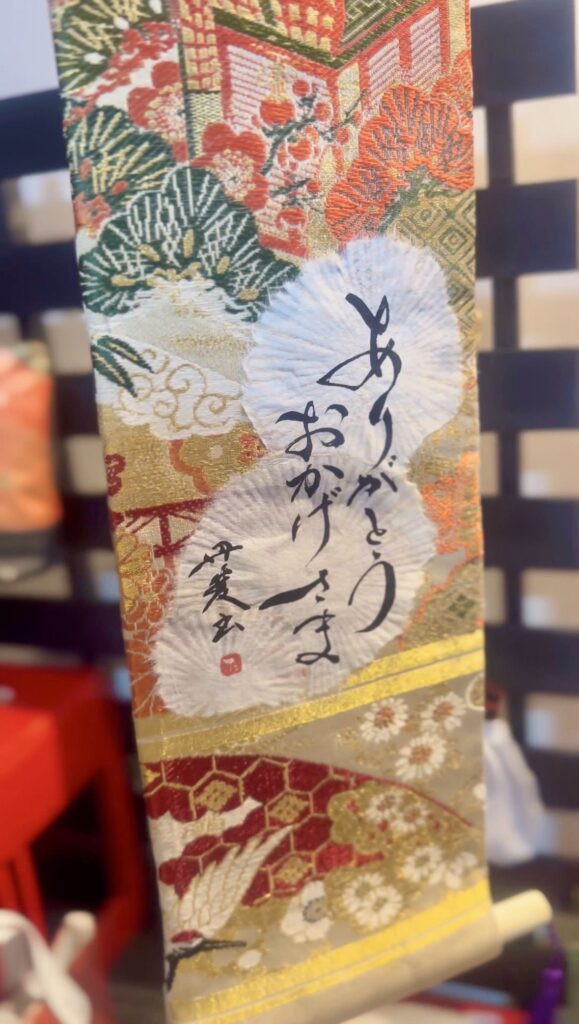 ありがとう
おかげさま
丹葉書